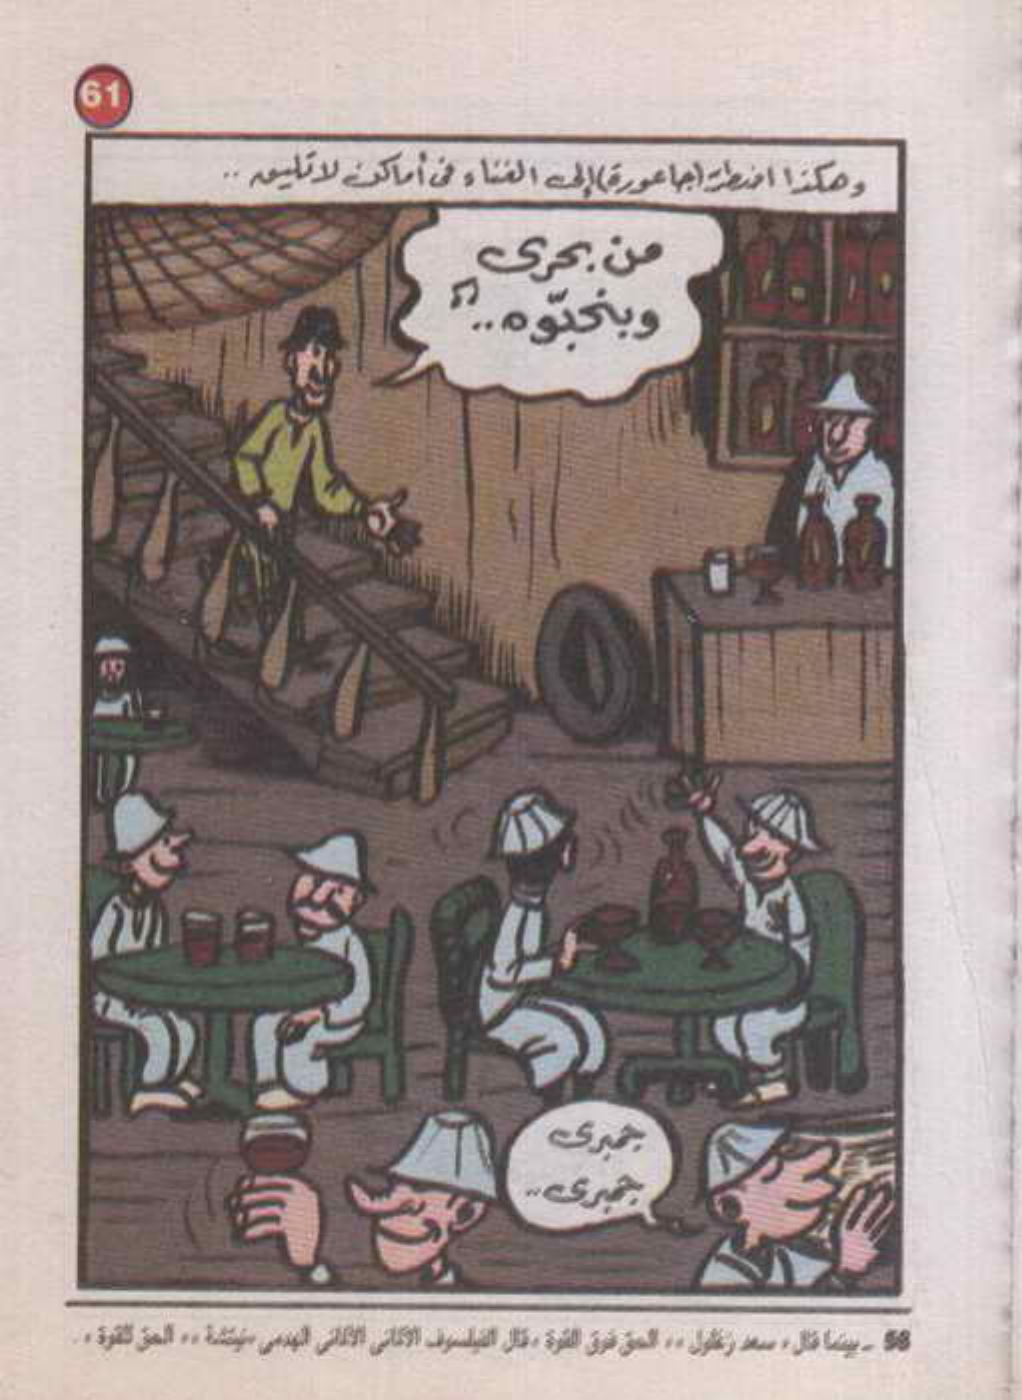 61
وهكذا اضطرت (جاعورة) إلى الغناء فى أماكن لا تليق ..
من بحرى
وبنحبّوه ..
جمبرى
جمبرى ..
98 ـ بينما قال « سعد زغلول » « الحق فوق القوة » قال الفيلسوف الألمانى الألمانى الهدمى «نيتشة » « الحق للقوة » .